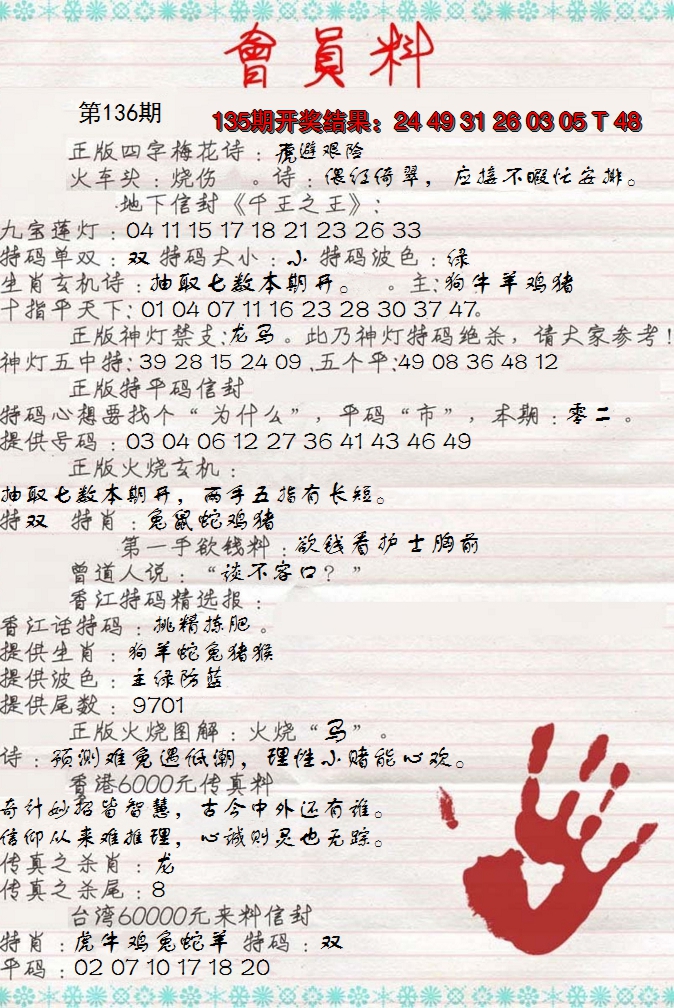 會員料
第136期
135期开奖结果：24 49 31 26 03 05 T 48
正版四字梅花诗：虎避艰险
火车头：烧伤 。诗：偎红倚翠，应接不暇忙安排。
地下信封《千王之王》：
九宝莲灯：04 11 15 17 18 21 23 26 33
特码单双：双 特码大小：小 特码波色：绿
生肖玄机诗：抽取七数本期开。 。主：狗牛羊鸡猪
十指平天下：01 04 07 11 16 23 28 30 37 47。
正版神灯禁支：龙马。此乃神灯特码绝杀，请大家参考！
神灯五中特：39 28 15 24 09 .五个平：49 08 36 48 12
正版特平码信封
特码心想要找个“为什么”，平码“市”，本期：零二。
提供号码：03 04 06 12 27 36 41 43 46 49
正版火烧玄机：
抽取七数本期开，两手五指有长短。
特双 特肖：兔鼠蛇鸡猪
第一手欲钱料：欲钱看护士胸前
曾道人说：“谈不容口？”
香江特码精选报：
香江话特码：挑精拣肥。
提供生肖：狗羊蛇兔猪猴
提供波色：主绿防蓝
提供尾数：9701
正版火烧图解：火烧“马”。
诗：预测难免遇低潮，理性小赌能心欢。
香港6000元传真料
奇计妙招皆智慧，古今中外还有谁。
信仰从来难推理，心诚则灵也无踪。
传真之杀肖：龙
传真之杀尾：8
台湾60000元来料信封
特肖：虎牛鸡兔蛇羊 特码：双
平码：02 07 10 17 18 20